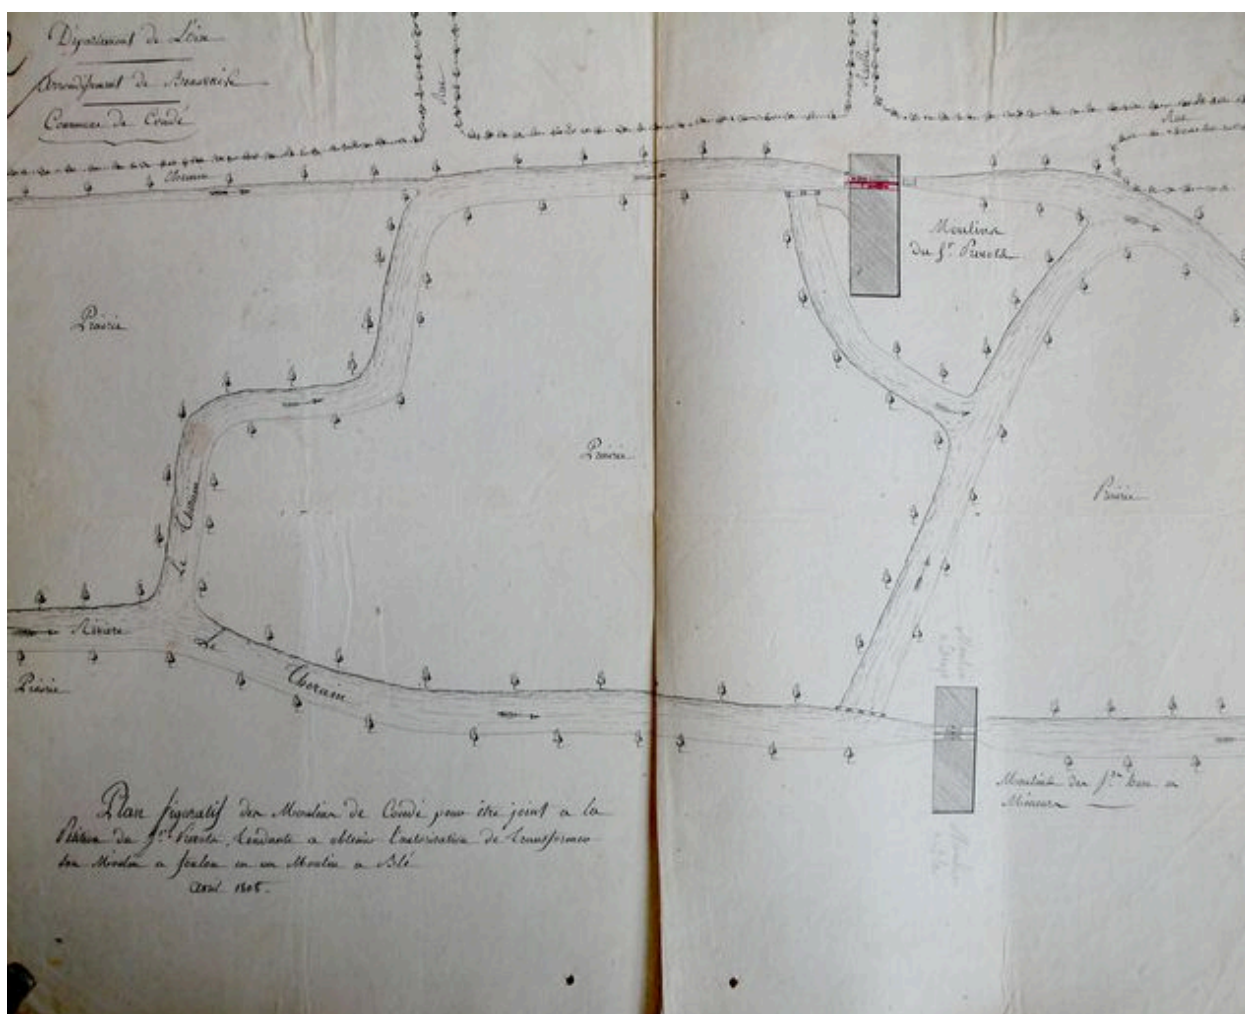 Département de L'oise
arrondissement de Beauvais
Commune de Condé
Rue
Ruelle
Rue
Therain
Moulins
du Sr.
Prairie
Prairie
Prairie
Le Therain
Rivière
Le Therain
Prairie
Moulins des Srs. et
Plan figuratif des Moulins de Condé pour être joint a la
Pétition du Sr. tendante a obtenir l'autorisation de transformer
son Moulin a foulon en un Moulin a Blé
avril 1808.